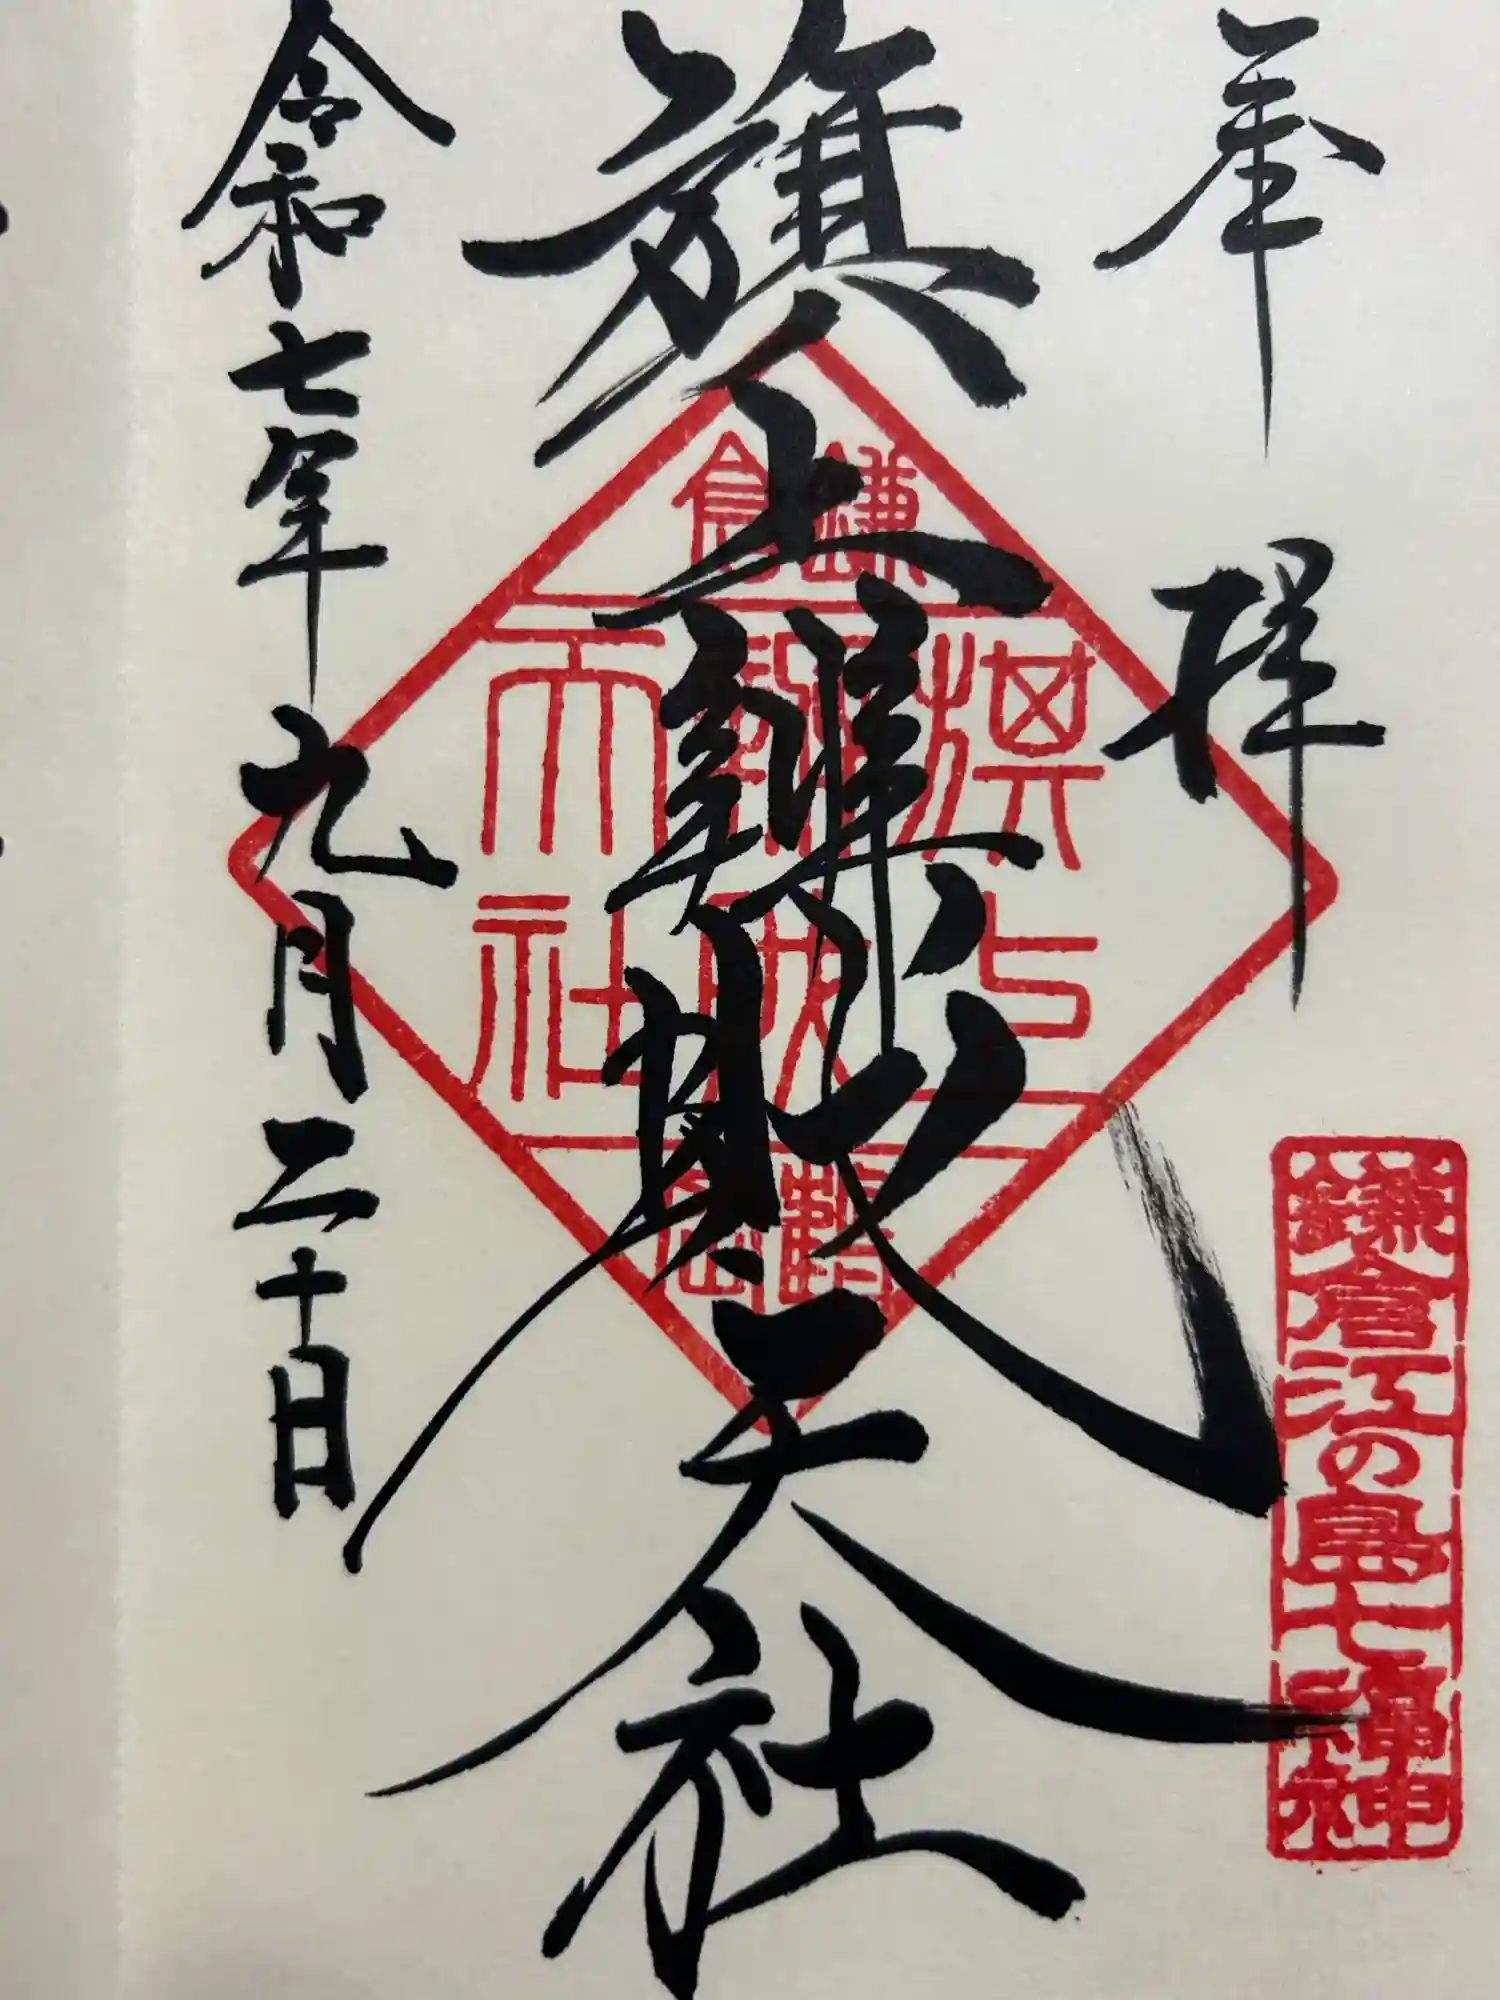 奉拝
鎌倉江の島七福神
旗上辨財天社
鎌倉
旗上
辨財
天社
鶴岡
令和七年九月二十日